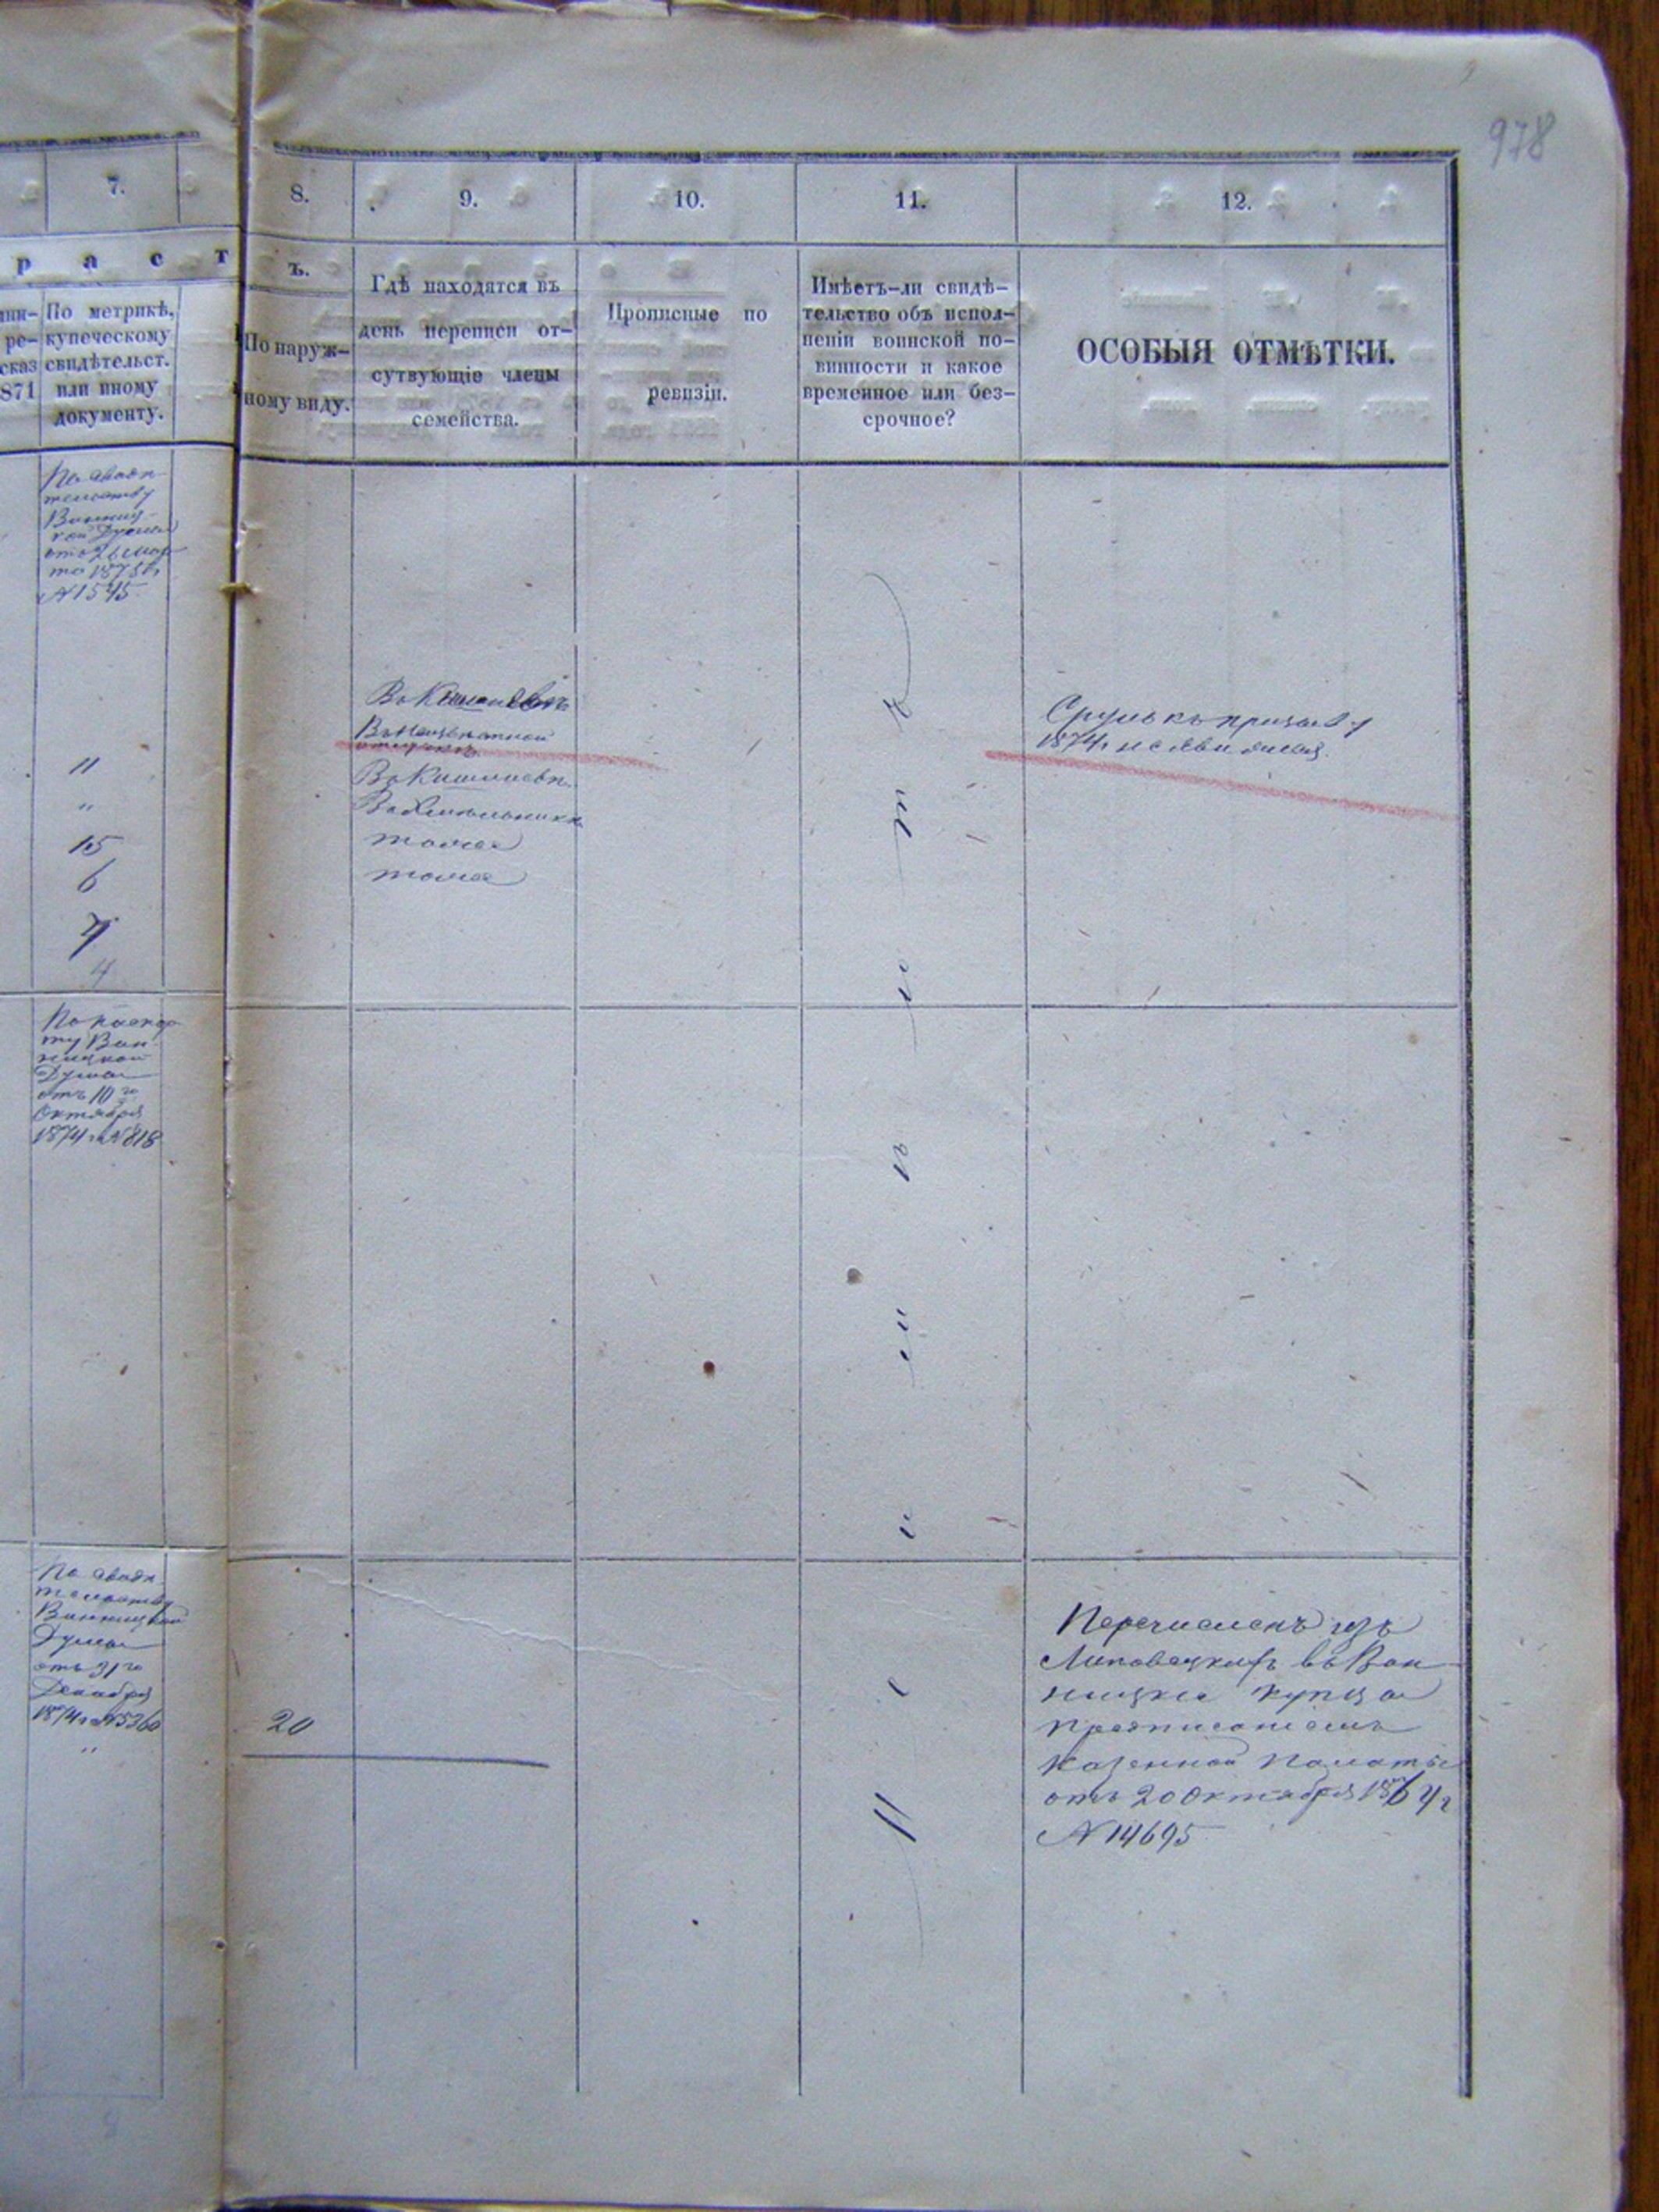 978
7.
8.
9.
10.
11.
12.
р а с т
ъ.
По метрикѣ,
купеческому
свидѣтельст.
или иному
документу.
ре-
сказ
871
По наруж-
ному виду.
Гдѣ находятся въ
день переписи от-
сутвующіе члены
семейства.
Прописные по
ревизіи.
Имѣетъ-ли свидѣ-
тельство объ испол-
неніи воинской по-
винности и какое
временное или без-
срочное?
ОСОБЫЯ ОТМѢТКИ.
По свидѣ-
тельству
Винниц-
кой Думы
отъ 26 мар-
та 1875 г.
№ 1545
11
"
15
6
4
Въ Кишиневѣ
Въ Кишиневѣ
Въ Хмѣльникѣ
тоже
тоже
Сруль къ призыву
1874 г не явился
По паспор-
ту Вин-
ницкой
Думы
отъ 10 го
Октября
1874 г № 818
По свидѣ-
тельству
Винницкой
Думы
отъ 31 го
Декабря
1874 г № 5360
"
20
Перечисленъ изъ
Липовецкихъ въ Вин-
ницкіе купцы
предписаніемъ
Казенной Палаты
отъ 20 Октября 1864 г
№ 14695